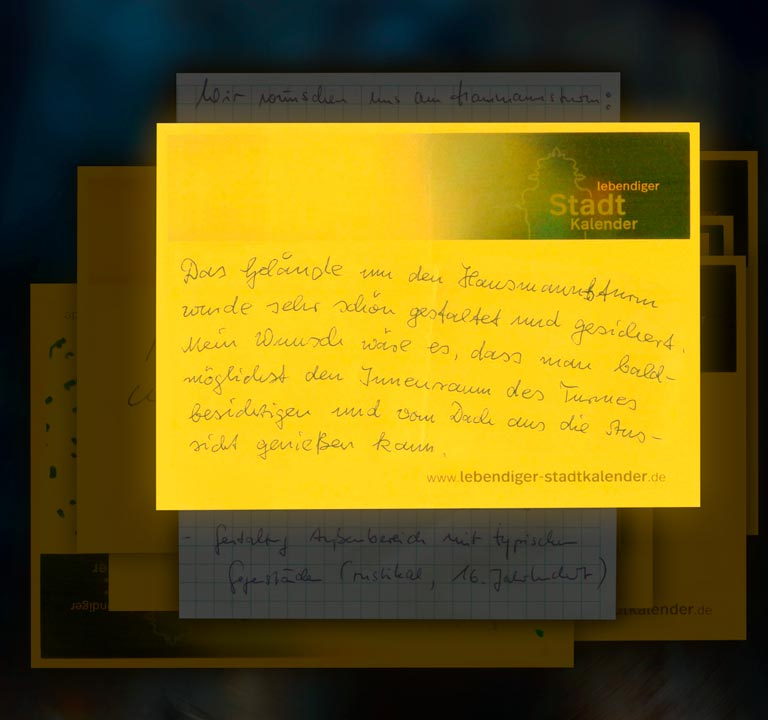 Wir wünschen uns am Hausmannsturm:
lebendiger
Stadt
Kalender
Das Gelände um den Hausmannsturm
wurde sehr schön gestaltet und gesichert.
Mein Wunsch wäre es, dass man bald-
möglichst den Innenraum des Turmes
besichtigen und vom Dach aus die Aus-
sicht genießen kann.
www.lebendiger-stadtkalender.de
- Gestaltung Außenbereich mit typischen
Gegenständen (rustikal, 16. Jahrhundert)
stadtkalender.de